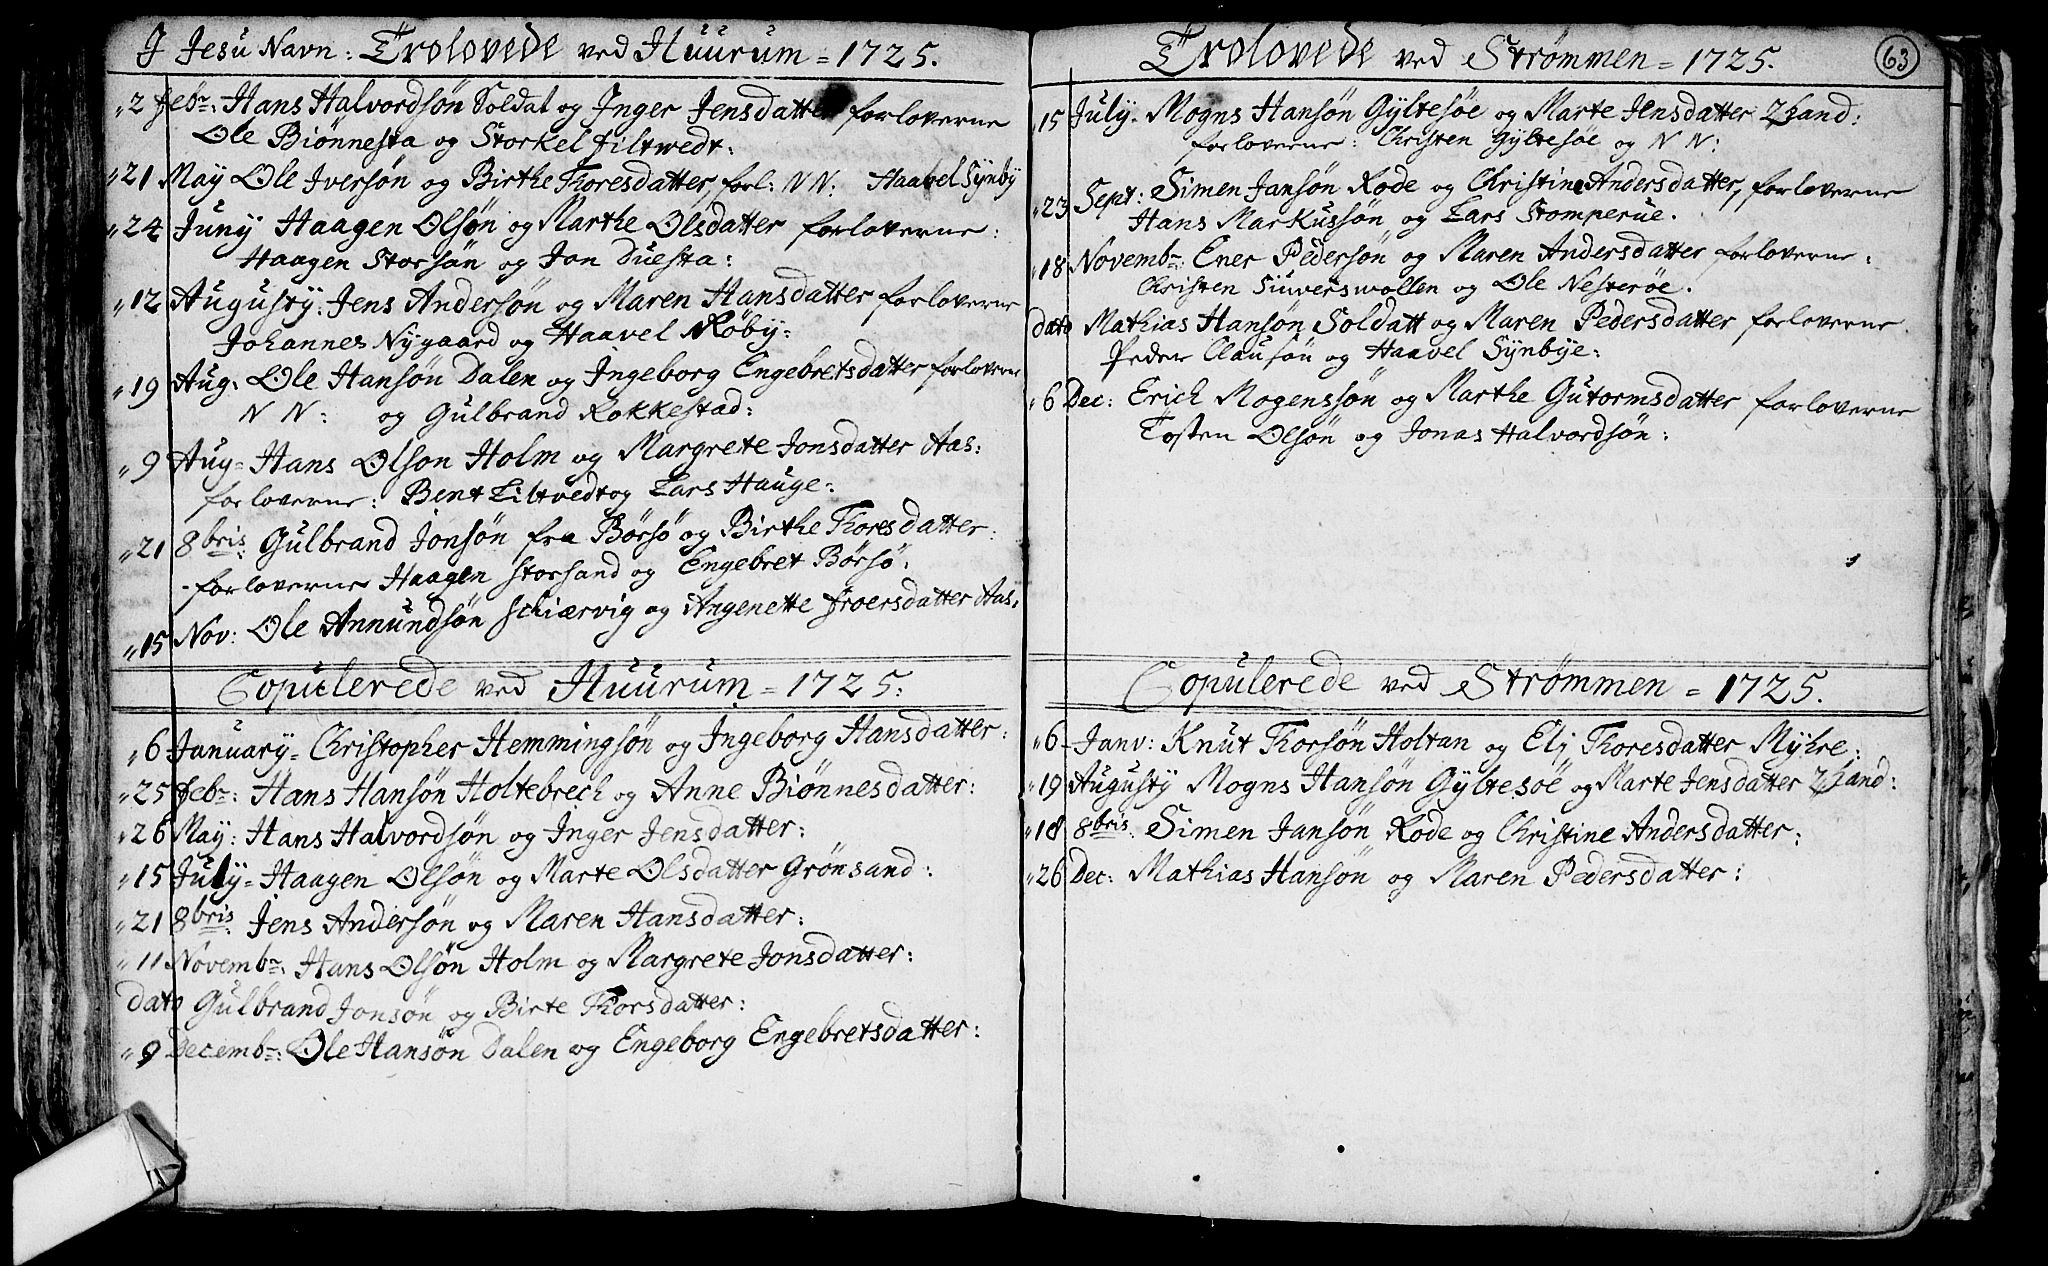 J Jesu Navn: Trolovede ved Huurum = 1725.
„2 Febr: Hans Halvordsøn Soldat og Inger Jensdatter forloverne
Ole Biønnesta og Storkel Tiltwedt:
„21 May Ole Iversøn og Birthe Thoresdatter, forl: NN: Haavel Synby
„24 Juny Haagen Olsøn og Marthe Olsdatter forloverne:
Haagen Storsan og Jon Duesta:
„12 Augusty: Jens Andersøn og Maren Hansdatter forloverne
Johannes Nygaard og Haavel Røby:
„19 Aug: Ole Hansøn Dalen og Ingeborg Engebretsdatter forloverne
NN: og Gulbrand Rokkestad:
„9 Aug= Hans Olson Holm og Margrete Jonsdatter Aas:
forloverne: Bent Liltvedt og Lars Hauge:
„21 8bris: Gulbrand Jonsøn fra Børsø og Birthe Thoresdatter:
-forloverne Haagen Storsand og Engebret Børsø:
„15 Nov: Ole Annundsøn Schiærvig og Angenette Froersdatter Aas:
Copulerede ved Huurum = 1725:
„6 January= Christopher Hemmingsøn og Ingeborg Hansdatter:
„25 Febr: Hans Hansøn Holtebrech og Anne Biønnesdatter:
„26 May: Hans Halvordsøn og Inger Jensdatter:
„15 July= Haagen Olsøn og Marte Olsdatter Grønsand:
„21 8bris: Jens Andersøn og Maren Hansdatter:
„11 Novembr: Hans Olsøn Holm og Margrete Jonsdatter:
dato Gulbrand Jonsøn og Birte Thorsdatter:
„9 Decembr: Ole Hansøn Dalen og Engeborg Engebretsdatter:
Trolovede ved Strømmen = 1725.
63
„15 July= Mogns Hansøn Gyltesøe og Marte Jensdatter Zand:
forloverne: Christen Gyltesøe og NN:
„23 Sept: Simen Jansøn Rode og Christine Andersdatter, forloverne
Hans Markussøn og Lars Stomperue.
„18 Novembr: Ener Pedersøn og Maren Andersdatter forloverne:
Christen Siuverswollen og Ole Nesterøe.
dato Mathias Hansøn Soldatt og Maren Pedersdatter forloverne
Peder Clausøn og Haavel Synbye:
„6 Dec: Erich Mogenssøn og Marthe Gutormsdatter forloverne
Tosten Olsøn og Jonas Halvordsøn:
Copulerede ved Strømmen = 1725.
„6 Janv: Knut Thorsøn Holtan og Elj Thoresdatter Myhre:
„19 Augusty Mogns Hansøn Gyltesøe og Marte Jensdatter Zand:
„18 8bris: Simen Jansøn Rode og Christine Andersdatter:
„26 Dec: Mathias Hansøn og Maren Pedersdatter: